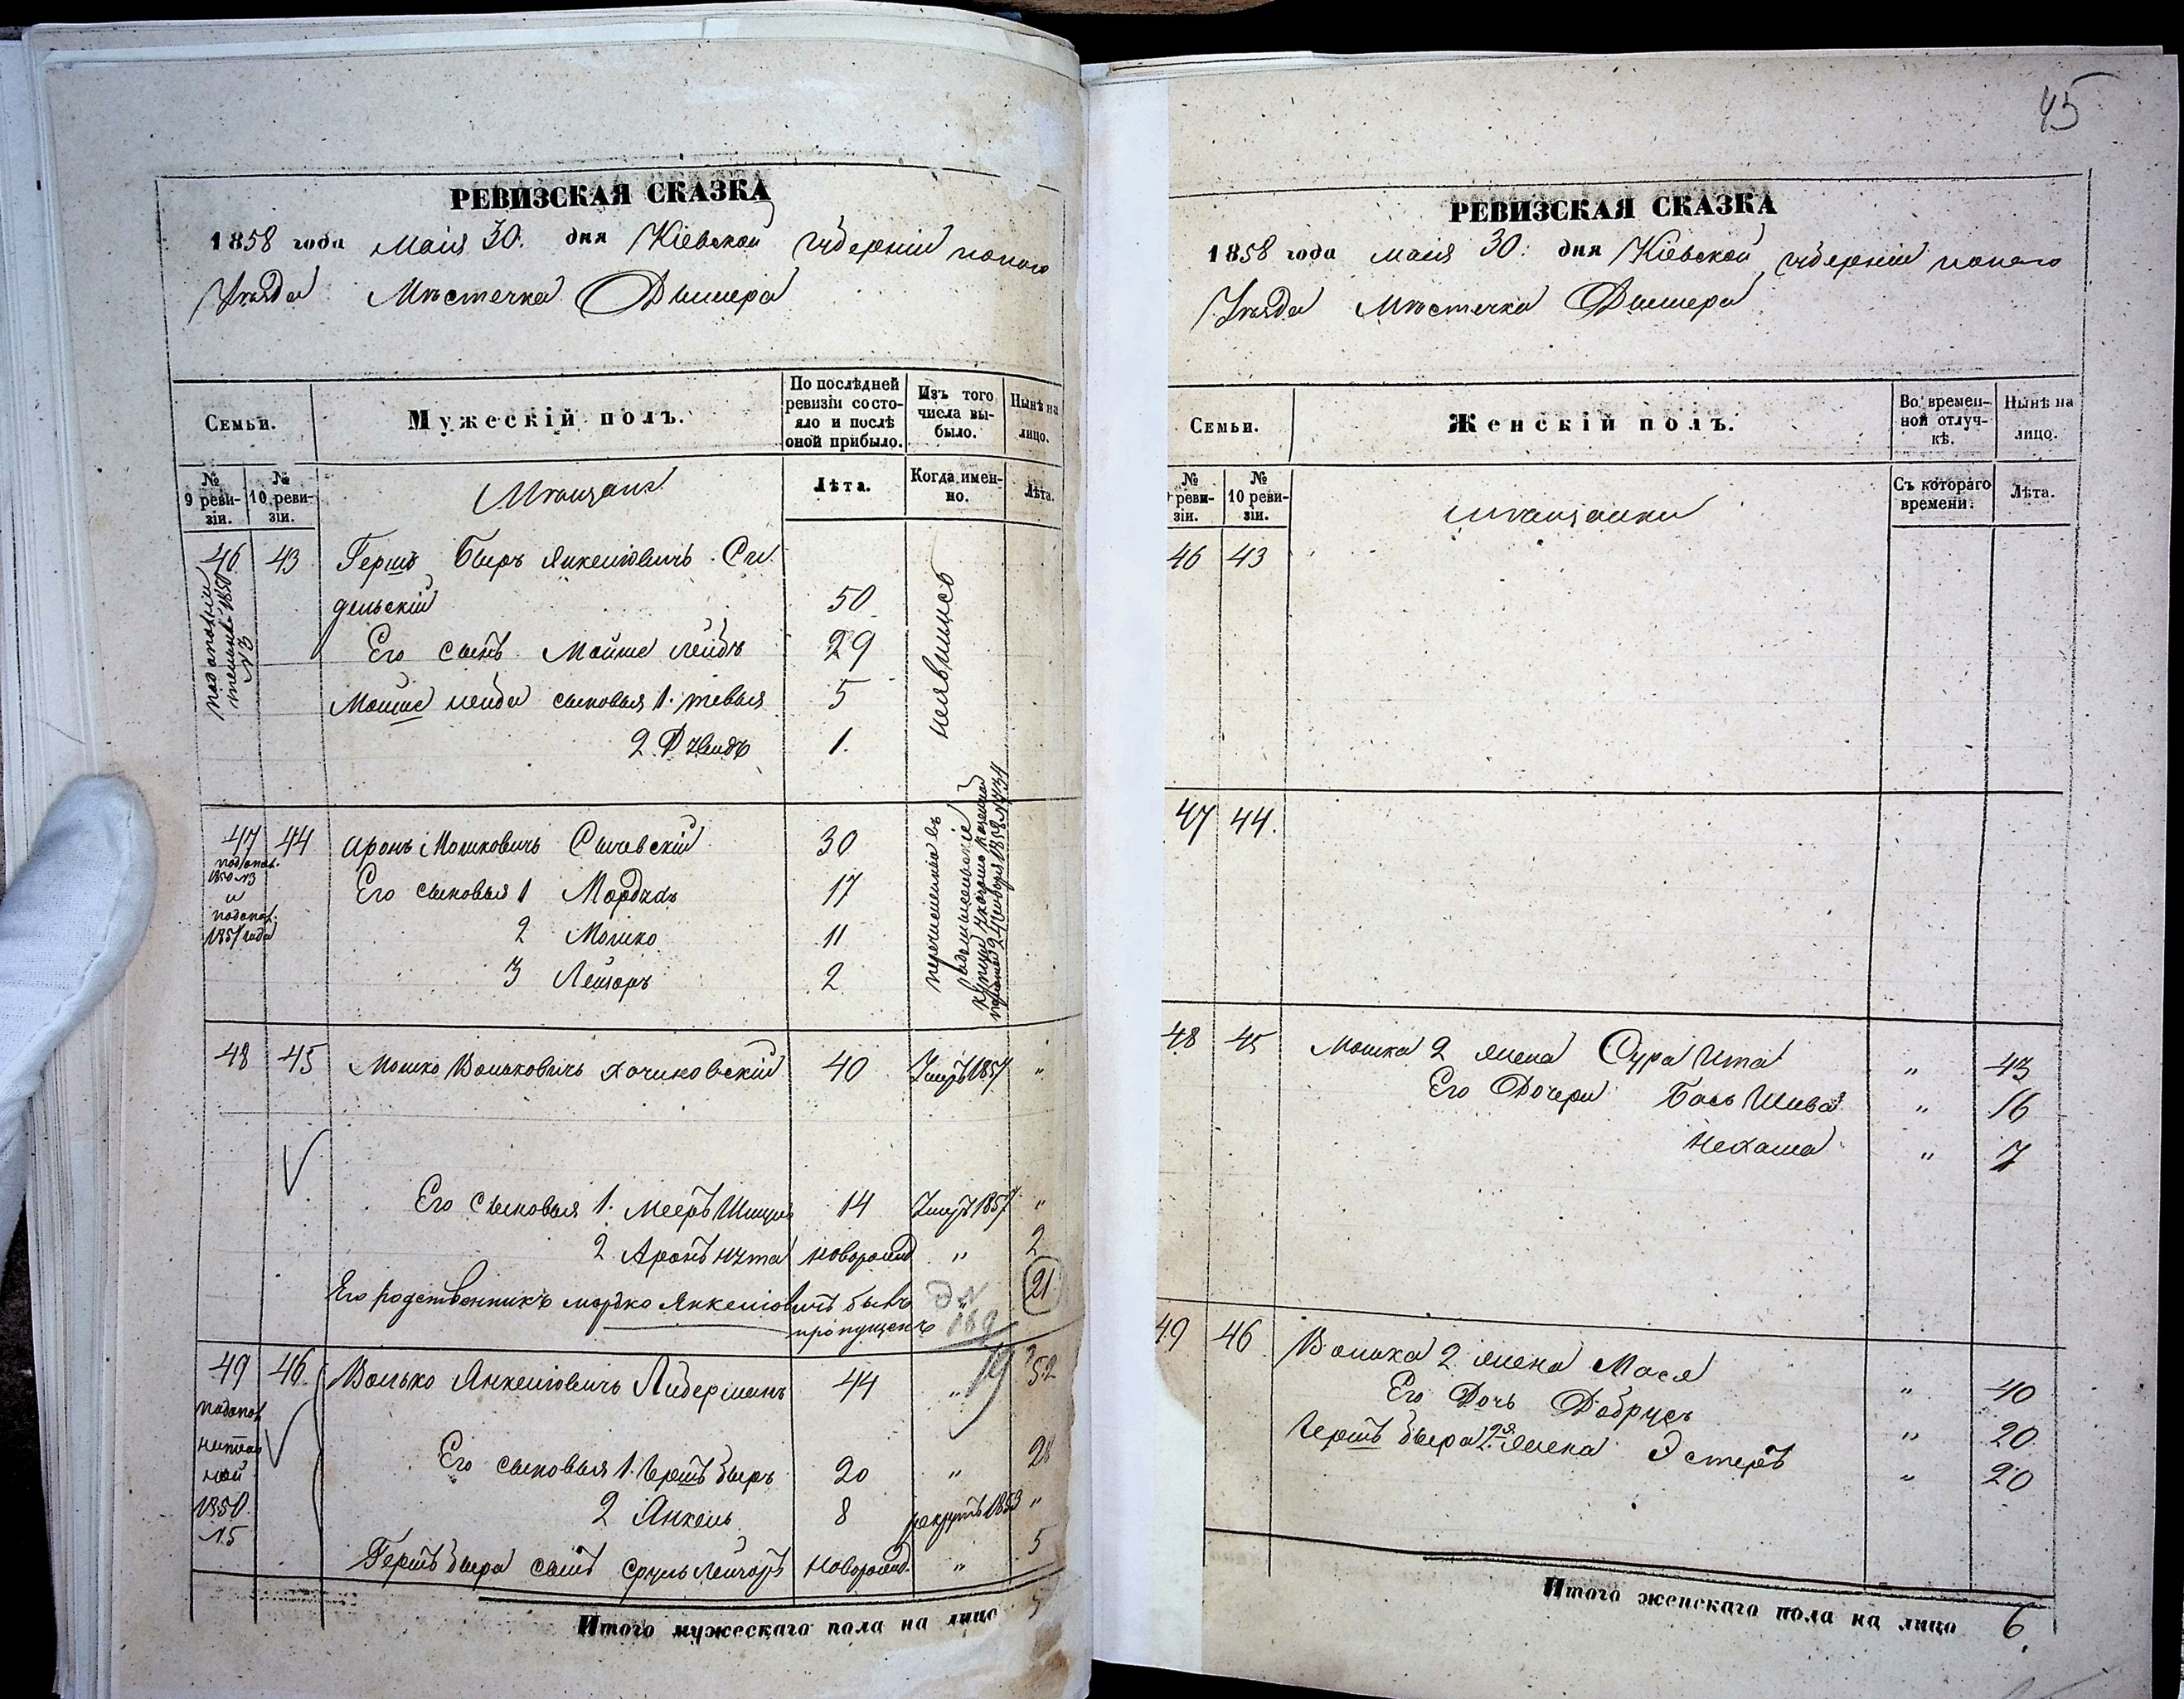 РЕВИЗСКАЯ СКАЗКА
1858 года Маія 30. дня Кіевской Губерніи того
Уѣзда Мѣстечка Дымера
Семьи.
Мужескій полъ.
По послѣдней ревизіи состояло и послѣ оной прибыло.
Изъ того числа выбыло.
Нынѣ на лицо.
№ 9 ревизіи.
№ 10 ревизіи.
Мѣщане
Лѣта.
Когда именно.
Лѣта.
46 43 Гершъ Беръ Янкелювичъ
50
1850 №3
Его сынъ Мойше Лейбъ 29
Мойше Лейба сыновья 1. 5
2. 1.
неявились
47 44 Аронъ Мошковичъ 30
1850 №3
и
1851 года
Его сыновья 1 Мордхъ 17
2 Мошко 11
3 Лейзоръ 2
перечислены въ
48 45 Мошко Вольковичъ 40 Умеръ 1857 "
Его сыновья 1. Мееръ 14 Умеръ 1857 "
2 Аронъ Нута новорожд. " 2
Его родственникъ Мордко Янкелювичъ былъ 21
пропущенъ
169
19
49 46 Волько Янкелювичъ Лидерманъ 44 " 52
1850.
№5
Его сыновья 1. Гершъ Беръ 20 " 28
2 Янкель 8 рекрутъ 1853 "
Гершъ Бера сынъ Сруль Лейзоръ новорожд. " 5
Итого мужескаго пола на лицо 5
45
РЕВИЗСКАЯ СКАЗКА
1858 года маія 30. дня Кіевской губерніи того
Уѣзда Мѣстечка Дымера
Семьи.
Женскій полъ.
Во временной отлучкѣ.
Нынѣ на лицо.
ревизіи.
№ 10 ревизіи.
мѣщанки
Съ котораго времени.
Лѣта.
46 43
47 44.
48 45 Мошка 2 жена Сура Ита " 43
Его Дочери Бась Шива " 16
Нехама " 7
49 46 Волька 2 жена Мася " 40
Его Дочь Добрусь " 20
Гершъ Бера жена Эстеръ " 20
Итого женскаго пола на лицо 6.